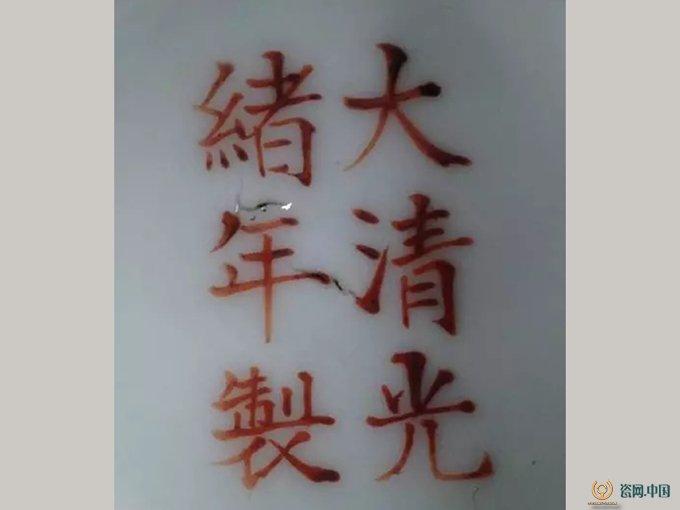 大清光
緒年製
瓷网.中国